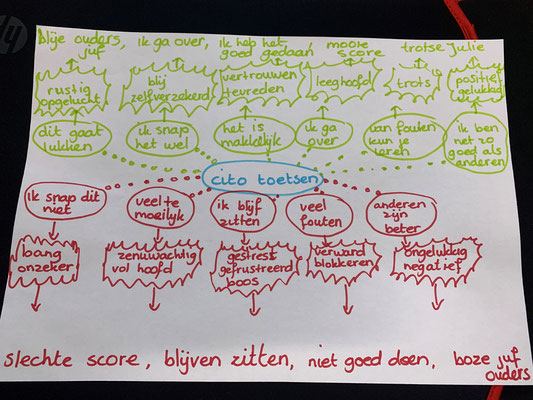 blije ouders, ik ga over, ik heb het mooie trotse Julie
juf goed gedaan, score
rustig
opgelucht
blij
zelfverzekerd
vertrouwen
tevreden
leeghoofd
trots
positief
gelukkig
dit gaat
lukken
ik snap
het wel
het is
makkelijk
ik ga
over
van fouten
kun je
leren
ik ben
net zo
goed als
anderen
cito toetsen
ik snap dit
niet
veel te
moeilijk
ik blijf
zitten
veel
fouten
anderen
zijn
beter
bang
onzeker
zenuwachtig
vol hoofd
gestrest
gefrustreerd
boos
verward
blokkeren
ongelukkig
negatief
slechte score, blijven zitten, niet goed doen, boze juf
ouders